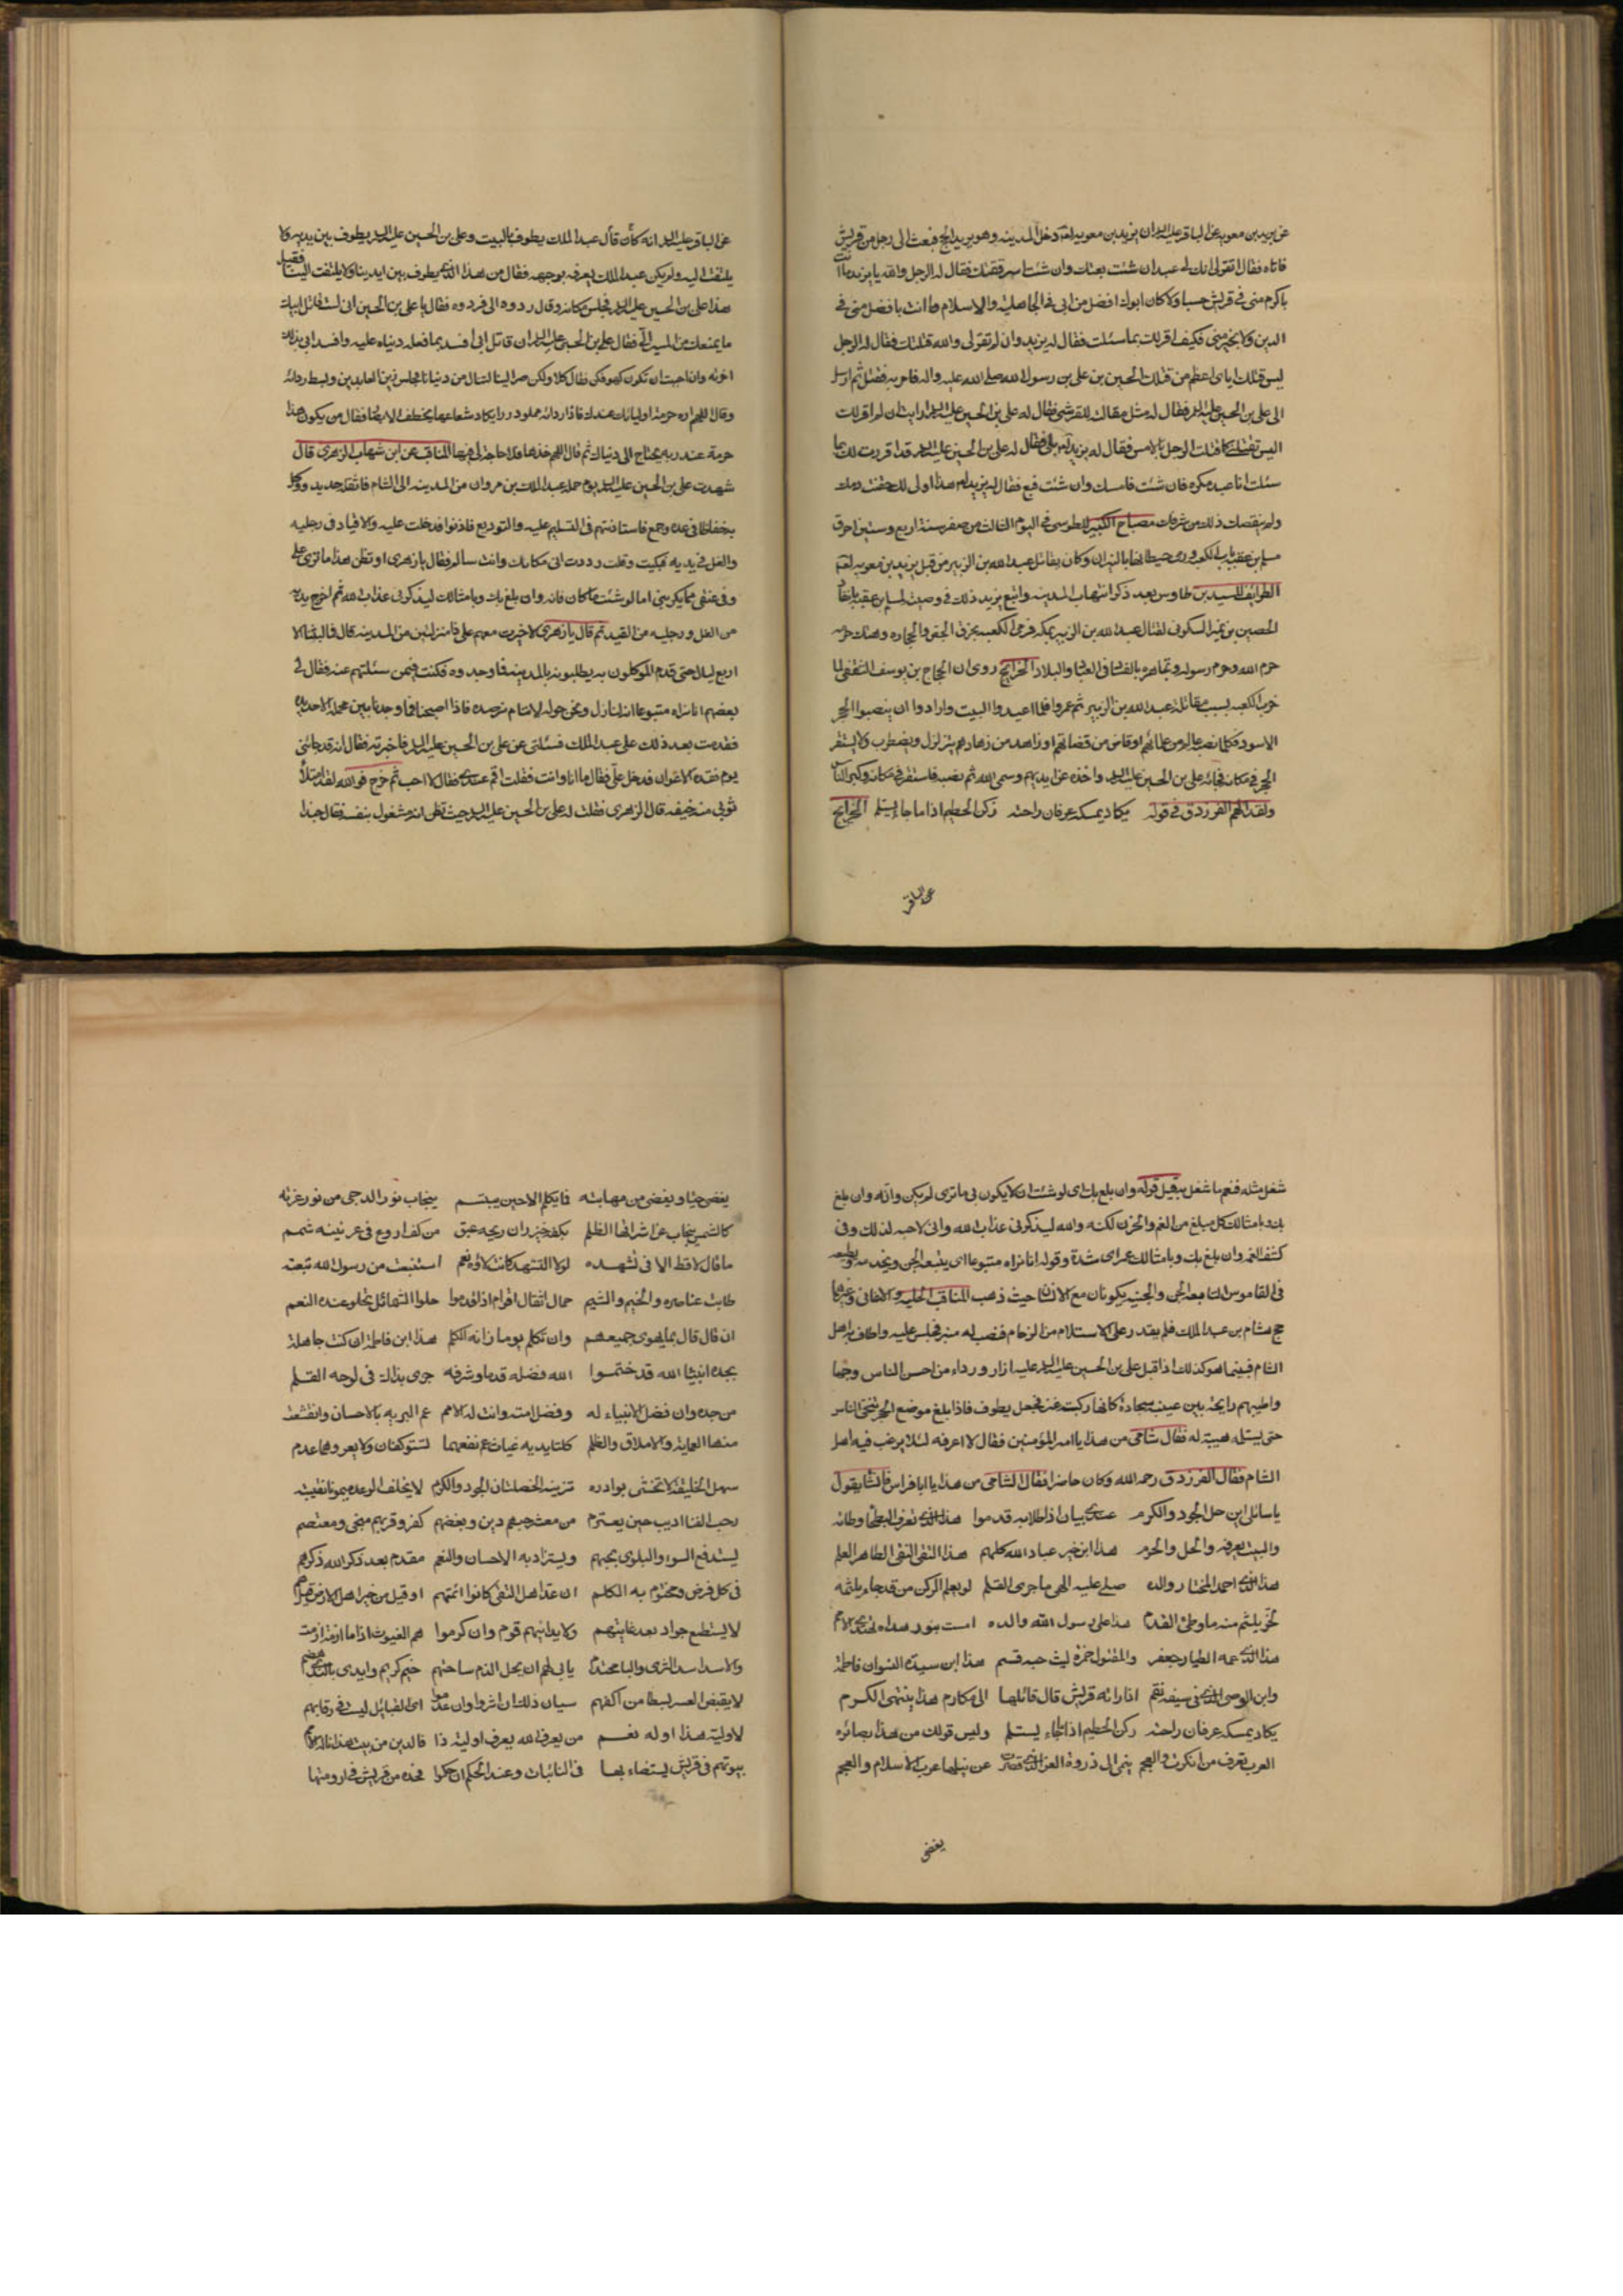 عن بريد بن معوية عن الباقر عليه السلم ان يزيد بن معوية لعنه دخل المدينة وهو يريد الحج فبعث الى رجل من قريش
فاتاه فقال له اتقر لى انك لى عبد ان شئت بعتك وان شئت استرققتك فقال له الرجل والله يا يزيد ما انت
باكرم منى فى قريش حسبا ولا كان ابوك افضل من ابى فى الجاهلية والاسلام وما انت بافضل منى فى
الدين ولا بخير منى فكيف اقر لك بما سئلت فقال له يزيد وان لم تقر لى والله قتلتك فقال له الرجل
ليس قتلك اياى اعظم من قتلك الحسين بن على بن رسول الله صلى الله عليه واله فامر به فقتل ثم ارسل
الى على بن الحسين عليه السلم فقال له مثل مقالته للقرشى فقال له على بن الحسين عليه السلم ارايت ان لم اقر لك
اليس تقتلنى كما قتلت الرجل بالامس فقال له يزيد لعنه بلى فقال له على بن الحسين عليه السلم قد اقررت لك بما
سئلت انا عبد مكره فان شئت فامسك وان شئت فبع فقال له يزيد لعنه اولى لك حقنت دمك
ولم ينقصك ذلك من شرفك مصباح الكبير للطوسى فى اليوم الثالث من صفر سنة اربع وستين احرق
مسلم بن عقبة باب الكعبة ورمى حيطانها بالنيران وكان يقاتل عبد الله بن الزبير من قبل يزيد بن معوية لعنه
الطرائف للسيد بن طاوس بعد ذكر انتهاب المدينة واتبع يزيد ذلك فى وصيته لمسلم بن عقبة بانفاذ
الحصين بن نمير السكونى لقتال عبد الله بن الزبير بمكة فرمى الكعبة بخرق الحيض والحجارة وهتك حرمة
حرم الله وحرم رسوله وتجاهر بالفساد فى العباد والبلاد الخرايج روى ان الحجاج بن يوسف الثقفى لما
خرب الكعبة بسبب مقاتلة عبد الله بن الزبير ثم عمروها فلما اعيدوا البيت وارادوا ان ينصبوا الحجر
الاسود فكلما نصبه عالم من علمائهم او قاض من قضاتهم او زاهد من زهادهم يتزلزل ويضطرب ولا يستقر
الحجر فى مكانه فجائه على بن الحسين عليه السلم واخذه من ايديهم وسمى الله ثم نصبه فاستقر فى مكانه وكبر الناس
ولقد الهم الفرزدق فى قوله يكاد يمسكه عرفان راحته ركن الحطيم اذا ما جاء يستلم الخرايج
عن الباقر
عن الباقر عليه السلم انه كان قال عبد الملك يطوف بالبيت وعلى بن الحسين عليه السلم يطوف بين يديه ولا
يلتفت اليه ولم يكن عبد الملك يعرفه بوجهه فقال من هذا الذى يطوف بين ايدينا ولا يلتفت الينا فقيل
هذا على بن الحسين عليه السلم فجلس مكانه وقال ردوه الى فردوه فقال يا على بن الحسين انى لست قاتل ابيك
ما يمنعك من المسير الى فقال على بن الحسين عليه السلم ان قاتل ابى افسد بما فعله دنياه عليه وافسد ابى بذلك
اخرته وان احببت ان تكون كهو فكن فقال كلا ولكن صر الينا لتنال من دنيانا فجلس زين العابدين وبسط ردائه
وقال اللهم اره حرمة اوليائك عندك فاذا ردائه مملو درر يكاد شعاعها يخطف الابصار فقال من يكون هذا
حرمته عند ربه يحتاج الى دنياك ثم قال اللهم خذها فلا حاجة لى فيها المناقب عن ابن شهاب الزهرى قال
شهدت على بن الحسين عليه السلم يوم حمله عبد الملك بن مروان من المدينة الى الشام فاثقله حديد ووكل
به حفاظا فى عدة وجمع فاستاذنتهم فى التسليم عليه والتوديع فاذنوا فدخلت عليه والاقياد فى رجليه
والغل فى يديه فبكيت وقلت وددت انى مكانك وانت سالم فقال يا زهرى او تظن هذا ما ترى على
وفى عنقى مما يكربنى اما لو شئت ما كان فانه وان بلغ بك وبامثالك ليذكرنى عذاب الله ثم اخرج يديه
من الغل ورجليه من القيد ثم قال يا زهرى لاجزت معهم على ذا منزلتين من المدينة قال فما لبثنا الا
اربع ليال حتى قدم الموكلون به يطلبونه بالمدينة فما وجدوه فكنت فيمن سئلهم عنه فقال لى
بعضهم انا نراه متبوعا انه لنازل ونحن حوله لا ننام نرصده فاذا اصبحنا فما وجدنا بين محمله الا حديده
فقدمت بعد ذلك على عبد الملك فسئلنى عن على بن الحسين عليه السلم فاخبرته فقال انه قد جائنى
يوم فقده الاعوان فدخل على فقال ما انا وانت فقلت اقم عندى فقال لا احب ثم خرج فوالله لقد امتلا
ثوبى منه خيفه قال الزهرى فقلت له على بن الحسين عليه السلم حيث تظن انه مشغول بنفسه فقال حبذا
شغل مثله فنعم ما شغل به قيل قوله وان بلغ بك اى لو شئت ان لا يكون بى ما ترى لم يكن وانه وان بلغ
بك وبامثالك كل مبلغ من الغم والحزن لكنه والله ليذكرنى عذاب الله وانى لاحبه لذلك وفى
كشف الغمه وان بلغ بك وبامثالك غمر اى شدة وقوله انا نراه متبوعا اى يتبعه الجن ويخدمه ويطيعه
فى القاموس التابعة الجنى والجنية يكونان مع الانسان حيث ذهب المناقب الحلية والاغانى وغيرها
حج هشام بن عبد الملك فلم يقدر على الاستلام من الزحام فنصب له منبر فجلس عليه واطاف به اهل
الشام فبينما هو كذلك اذا قبل على بن الحسين عليه السلم عليه ازار ورداء من احسن الناس وجها
واطيبهم رايحة بين عينيه سجادة كانها ركبت عنز فجعل يطوف فاذا بلغ موضع الحجر تنحى الناس
حتى يستلمه هيبة له فقال شامى من هذا يا امير المؤمنين فقال لا اعرفه لئلا يرغب فيه اهل
الشام فقال الفرزدق رحمه الله وكان حاضرا فقال الشامى من هذا يا ابا فراس فانشا يقول
يا سائلى اين حل الجود والكرم عندى بيان اذا طلابه قدموا هذا الذى تعرف البطحاء وطاته
والبيت يعرفه والحل والحرم هذا ابن خير عباد الله كلهم هذا التقى النقى الطاهر العلم
هذا الذى احمد المختار والده صلى عليه الهى ما جرى القلم لو يعلم الركن من قد جاء يلثمه
لخر يلثم منه ما وطئ القدم هذا على رسول الله والده امست بنور هداه تهتدى الامم
هذا الذى عمه الطيار جعفر والمقتول حمزة ليث حبه قسم هذا ابن سيدة النسوان فاطمة
وابن الوصى الذى فى سيفه نقم اذا راته قريش قال قائلها الى مكارم هذا ينتهى الكرم
يكاد يمسكه عرفان راحته ركن الحطيم اذا ما جاء يستلم وليس قولك من هذا بضائره
العرب تعرف من انكرت والعجم ينمى الى ذروة العز التى قصرت عن نيلها عرب الاسلام والعجم
يغضى
يغضى حياء ويغضى من مهابته فما يكلم الا حين يبتسم ينجاب نور الدجى من نور غرته
كالشمس ينجاب عن اشراقها الظلم بكفه خيزران ريحه عبق من كف اروع فى عرنينه شمم
ما قال لا قط الا فى تشهده لولا التشهد كانت لاؤه نعم استنبعت من رسول الله نبعته
طابت عناصره والخيم والشيم حمال اثقال اقوام اذا فدحوا حلو الشمائل تحلو عنده النعم
ان قال قال بما يهوى جميعهم وان تكلم يوما زانه الكلم هذا ابن فاطمة ان كنت جاهله
بجده انبياء الله قد ختموا الله فضله قدما وشرفه جرى بذاك فى لوحه القلم
من جده دان فضل الانبياء له وفضل امته دانت له الامم عم البرية بالاحسان وانقشعت
عنها العماية والاملاق والظلم كلتا يديه غياث عم نفعهما تستوكفان ولا يعروهما عدم
سهل الخليقة لا تخشى بوادره تزينه الخصلتان الجود والكرم لا يخلف الوعد ميمونا نقيبته
رحب الفناء اريب حين يعترم من معشر حبهم دين وبغضهم كفر وقربهم منجى ومعتصم
يستدفع السوء والبلوى بحبهم ويستزاد به الاحسان والنعم مقدم بعد ذكر الله ذكرهم
فى كل فرض ومختوم به الكلم ان عد اهل التقى كانوا ائمتهم او قيل من خير اهل الارض قيل هم
لا يستطيع جواد بعد غايتهم ولا يدانيهم قوم وان كرموا هم الغيوث اذا ما ازمة ازمت
والاسد اسد الشرى والباس محتدم يابى لهم ان يحل الذم ساحتهم خيم كريم وايدى بالندى هضم
لا يقبض العسر بسطا من اكفهم سيان ذلك ان اثروا وان عدموا اى القبائل ليست فى رقابهم
لاولية هذا او له نعم من يعرف الله يعرف اولية ذا فالدين من بيت هذا ناله الامم
بيوتهم فى قريش يستضاء بها فى النائبات وعند الحكم ان حكموا فجده من قريش فى ارومتها